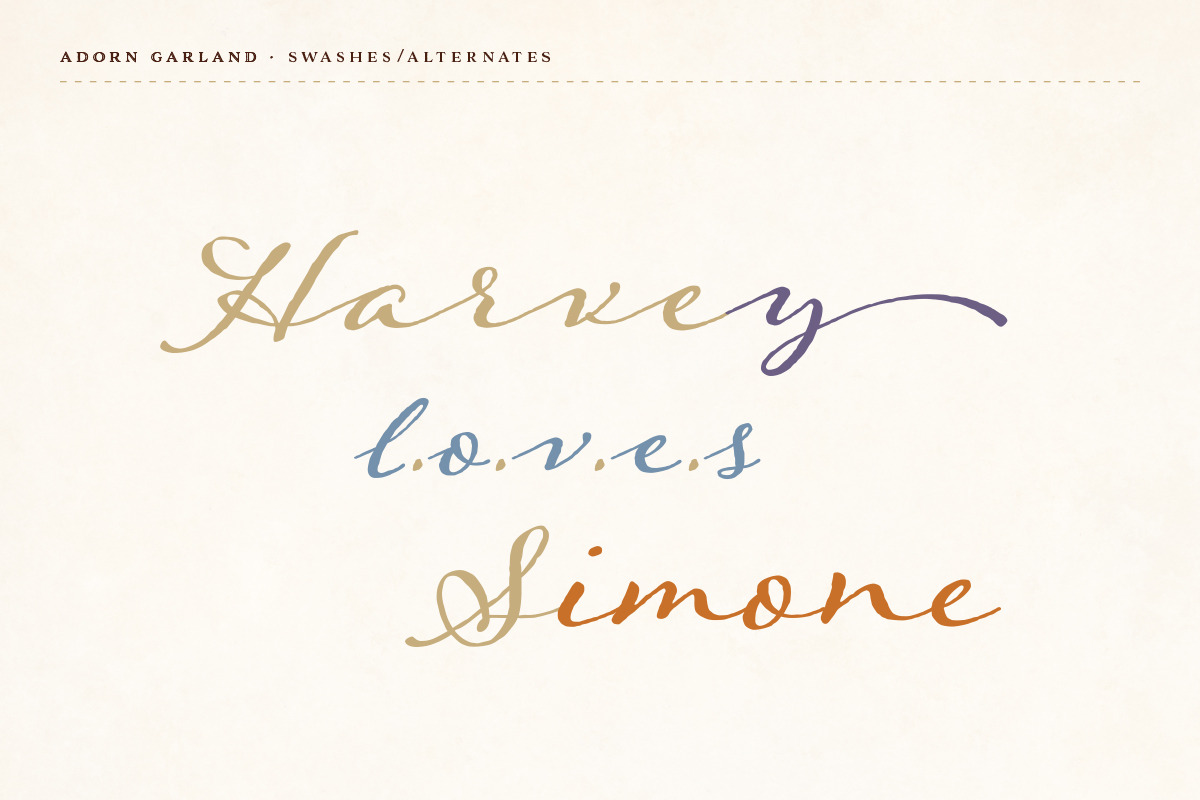 ADORN GARLAND · SWASHES/ALTERNATES
Harvey
l.o.v.e.s
Simone